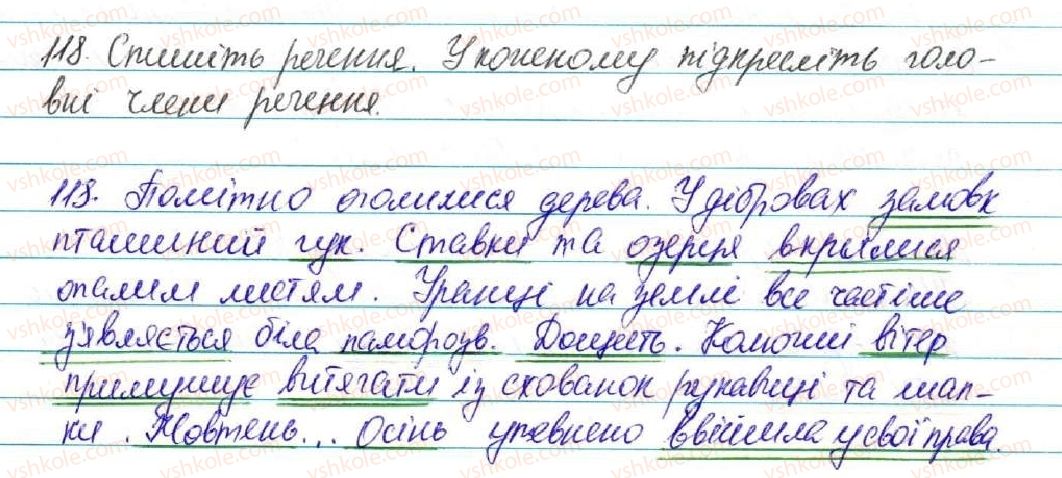 118. Спишіть речення. У кожному підкресліть голо-
вні члени речення.
118. Помітно оголилися дерева. У дібровах замовк
пташиний гук. Ставки та озерця вкрилися
опалим листям. Уранці на землі все частіше
з'являється біла паморозь. Дощить. Колючий вітер
примушує витягати із схованок рукавиці та шап-
ки. Жовтень... Осінь упевнено ввійшла у свої права.